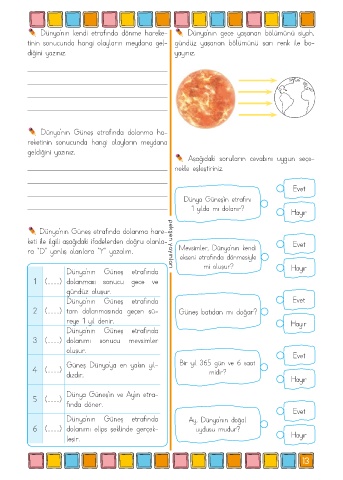 Dünya'nın kendi etrafında dönme hareke-
tinin sonucunda hangi olayların meydana gel-
diğini yazınız.
Dünya'nın Güneş etrafında dolanma ha-
reketinin sonucunda hangi olayların meydana
geldiğini yazınız.
Dünya'nın Güneş etrafında dolanma hare-
keti ile ilgili aşağıdaki ifadelerden doğru olanla-
ra "D" yanlış olanlara "Y" yazalım.
1 (......) Dünya'nın Güneş etrafında
dolanması sonucu gece ve
gündüz oluşur.
2 (......) Dünya'nın Güneş etrafında
tam dolanmasında geçen sü-
reye 1 yıl denir.
3 (......) Dünya'nın Güneş etrafında
dolanımı sonucu mevsimler
oluşur.
4 (......) Güneş Dünya'ya en yakın yıl-
dızdır.
5 (......) Dünya Güneş'in ve Ay'ın etra-
fında döner.
6 (......) Dünya'nın Güneş etrafında
dolanımı elips şeklinde gerçek-
leşir.
Dünya'nın gece yaşanan bölümünü siyah,
gündüz yaşanan bölümünü sarı renk ile bo-
yayınız.
Aşağıdaki soruların cevabını uygun seçe-
nekle eşleştiriniz.
Dünya Güneş'in etrafını
1 yılda mı dolanır?
Evet
Hayır
Mevsimler, Dünya'nın kendi
ekseni etrafında dönmesiyle
mi oluşur?
Evet
Hayır
Güneş batıdan mı doğar?
Evet
Hayır
Bir yıl 365 gün ve 6 saat
midir?
Evet
Hayır
Ay, Dünya'nın doğal
uydusu mudur?
Evet
Hayır
13